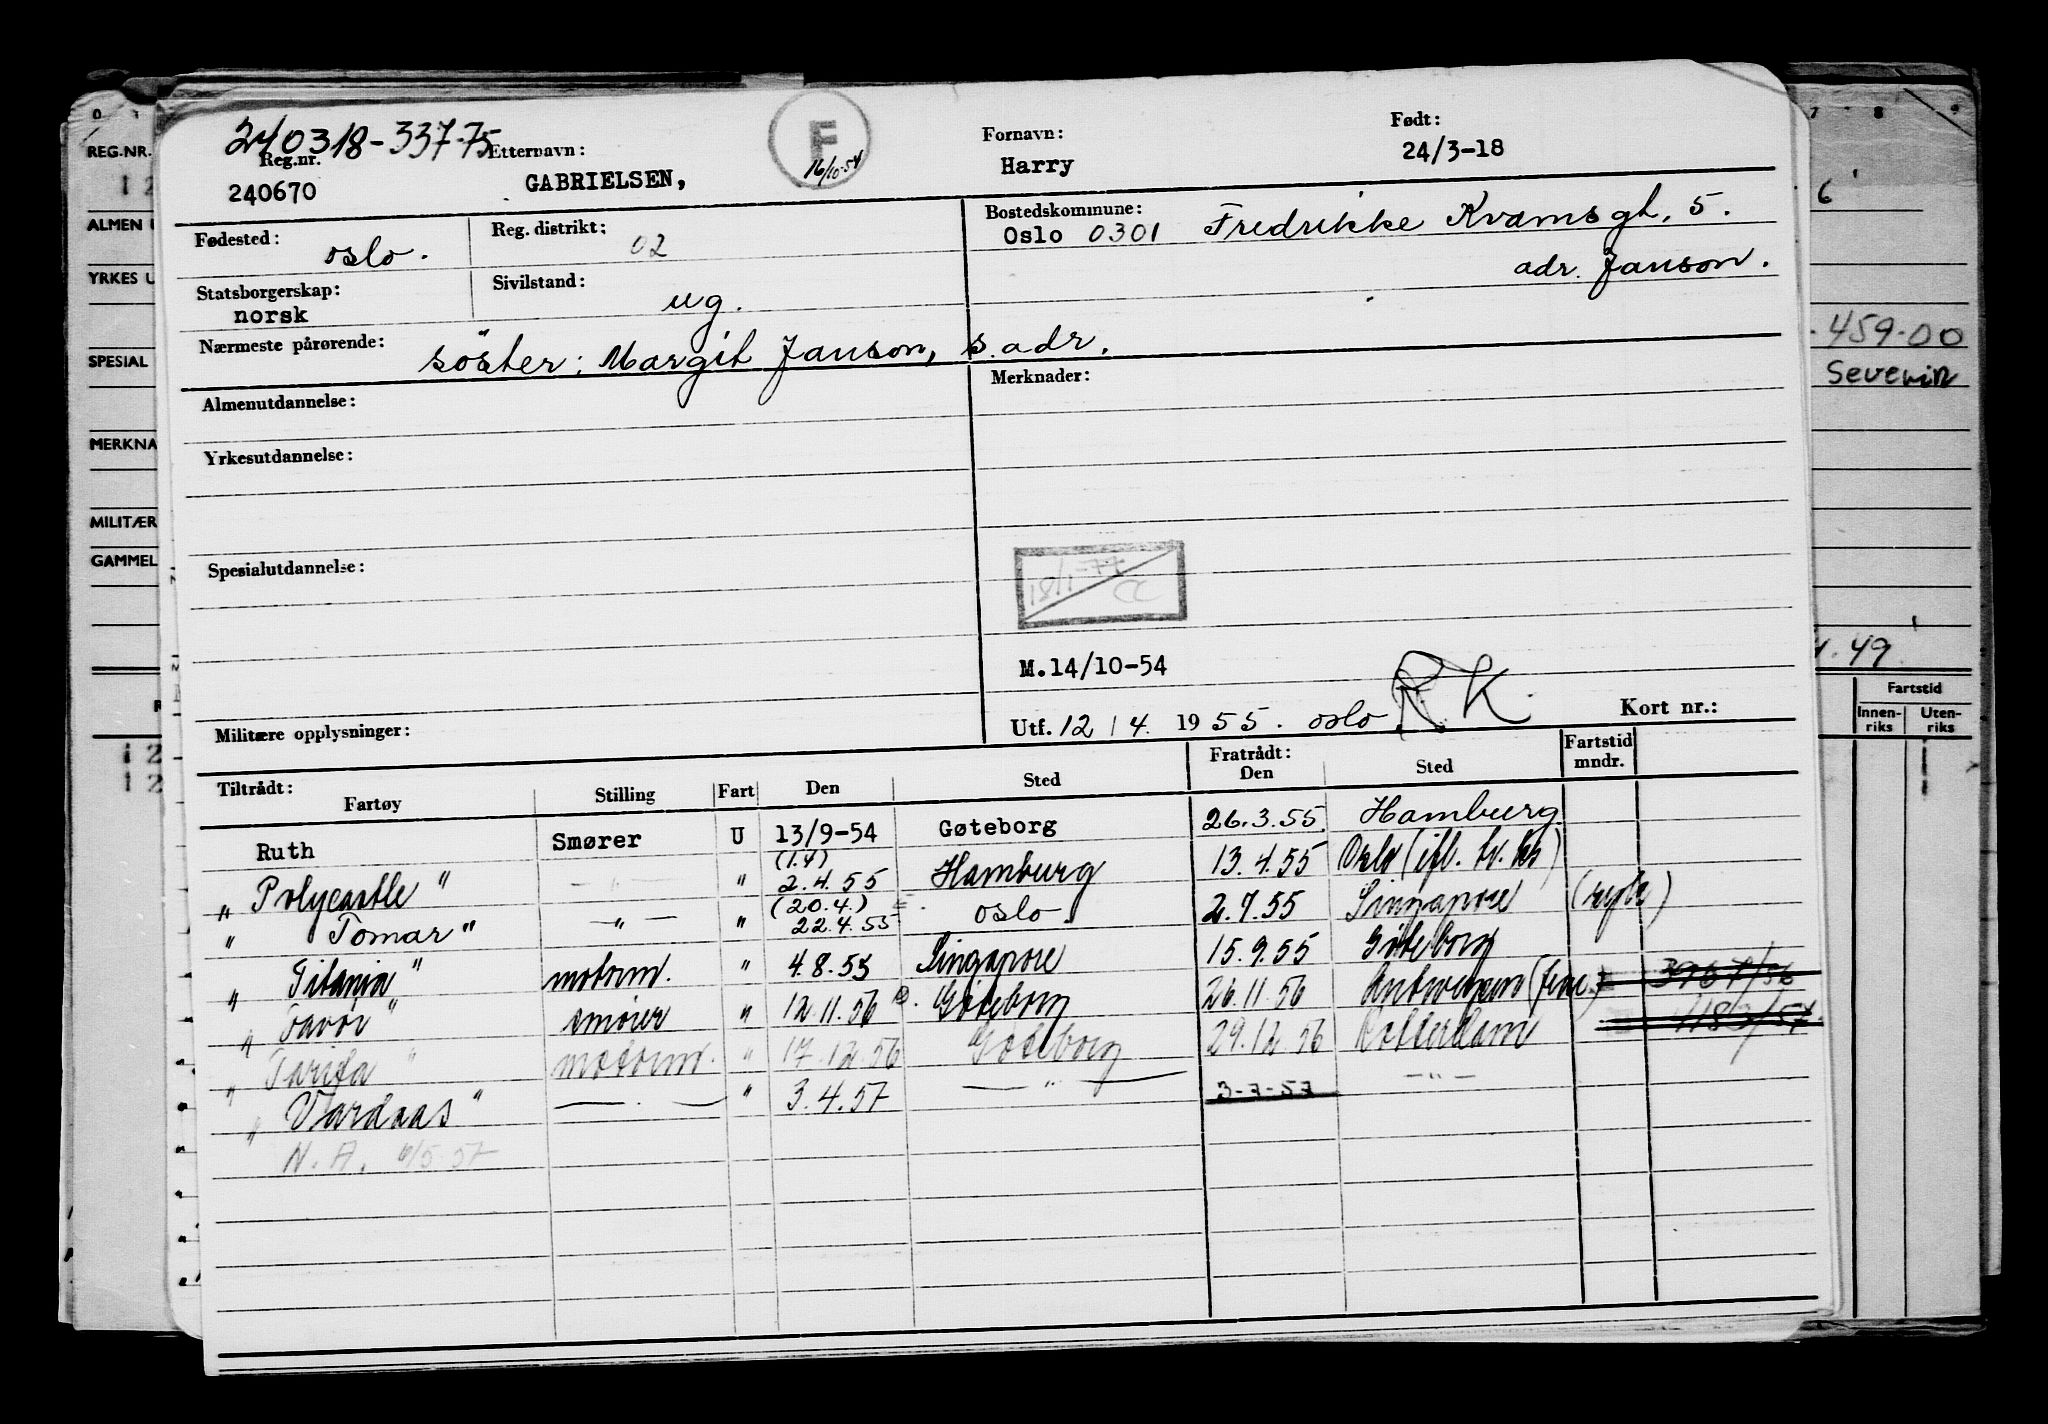 240318-33775
Reg.nr.
240670
Etternavn:
GABRIELSEN,
F
16/10-54
Fornavn:
Harry
Født:
24/3-18
Fødested:
oslo.
Reg. distrikt:
02
Bostedskommune:
Oslo 0301 Fredrikke Kvamsgt. 5.
adr. Janson.
Statsborgerskap:
norsk
Sivilstand:
ug.
Nærmeste pårørende:
söster: Margit Janson, s. adr.
Almenutdannelse:
Merknader:
Yrkesutdannelse:
Spesialutdannelse:
18/1-77
CC
M.14/10-54
Militære opplysninger:
Utf. 12/4. 1955. oslo. RK.
Kort nr.:
Tiltrådt:
Fartøy Stilling Fart Den Sted Fratrådt: Den Sted Fartstid mndr.
Ruth Smører U 13/9-54 Gøteborg 26.3.55. Hamburg
" Polycastle " — " — " (1.4) 2.4.55 Hamburg 13.4.55 Oslo
" Tomar " — " — " (20.4.) 22.4.55 oslo. 2.7.55 Singapore
" Titania " motorm. " 4.8.55 Singapore 15.9.55 Gøteborg
" Tavoi " smører " 12.11.56 Gøteborg 26.11.56 Antwerpen 3967/56
" Tarifa " motorm. " 17.12.56 Gøteborg 29.12.56 Rotterdam 4183/57
" Vardaas " — " — " 3.4.57 — " — 3-7-57 — " —
N.A. 6/5.57
REG.NR.
12
ALMEN
YRKES U
SPESIAL
MERKNA
MILITÆR
GAMMEL
12
12
7 8 9
6
459-00
Severin
49
Fartstid
Innen-riks Uten-riks